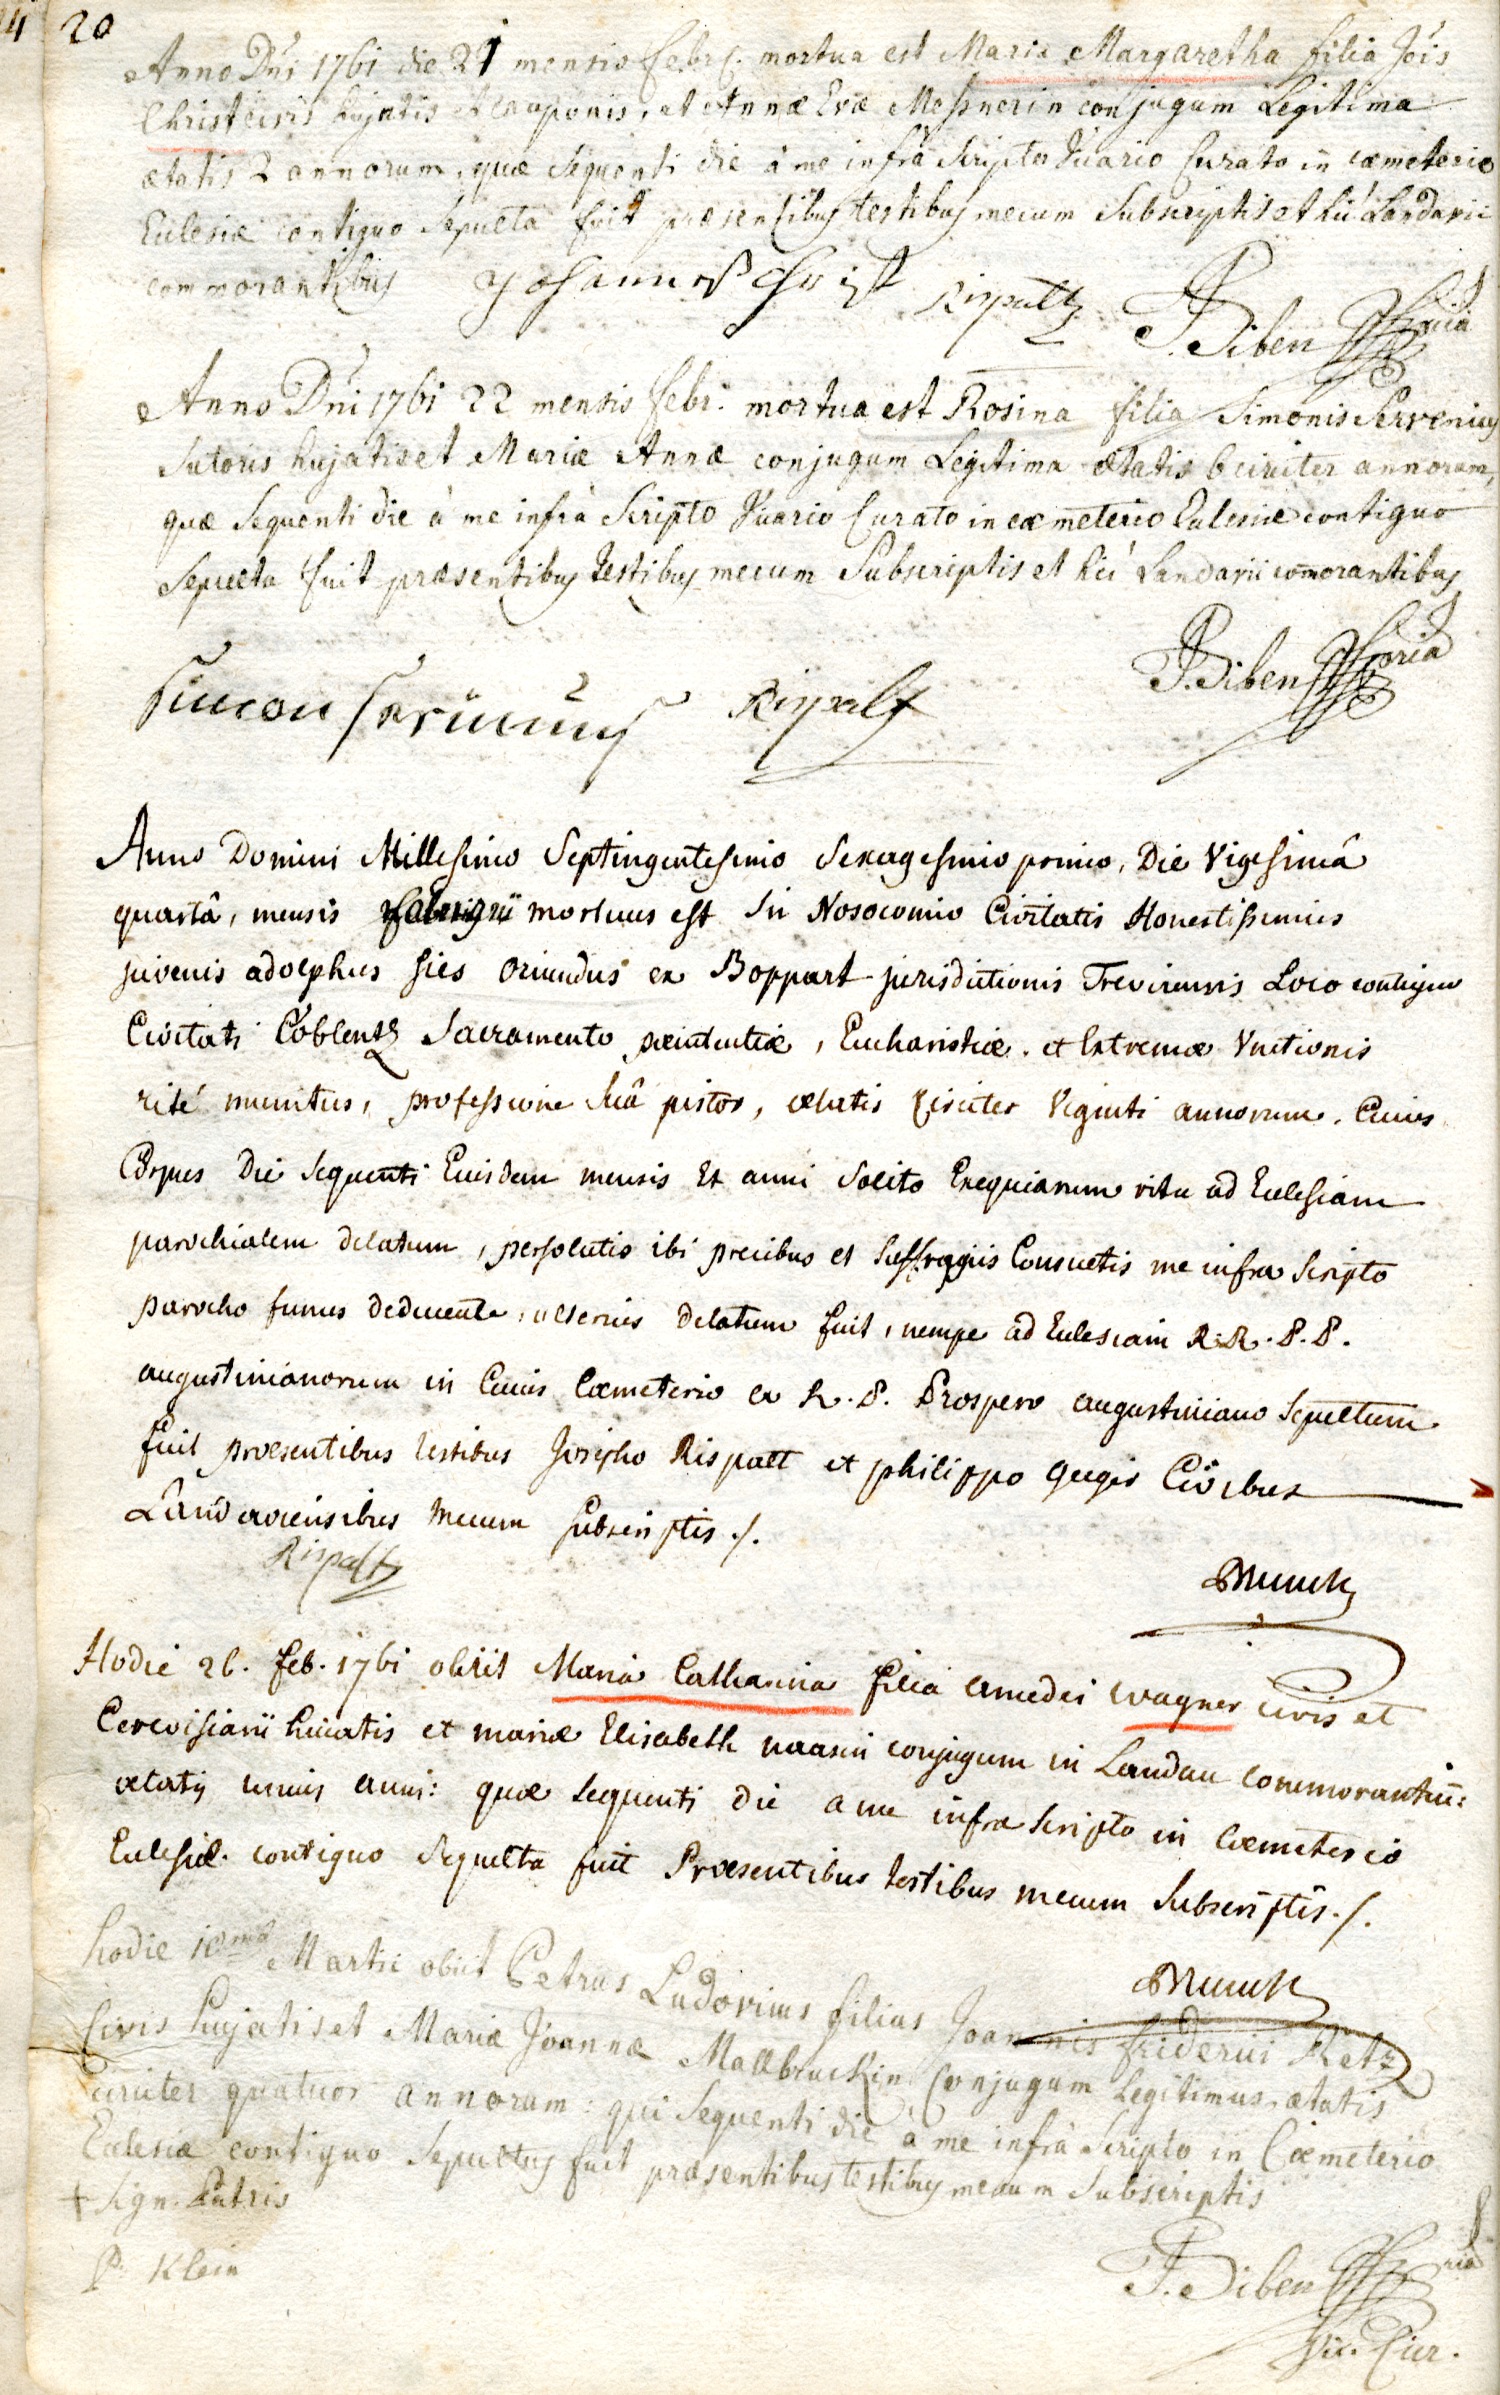 20
Anno Dni 1761 die 21 mensis febr. mortua est Maria Margaretha filia Jois
Christ civis hujatis et cauponis, et Annæ Evæ Messnerin conjugum Legitima
ætatis 2 annorum, quæ sequenti die à me infrà scripto Vicario Curato in cæmeterio
Ecclesiæ contiguo sepulta fuit præsentibus testibus mecum subscriptis et hic Landavii
commorantibus Johannes Christ Rispalt J. Siben
Anno Dni 1761 22 mensis febr. mortua est Rosina filia Simonis Servenius
sutoris hujatis et Mariæ Annæ conjugum Legitima ætatis 6 circiter annorum,
quæ sequenti die à me infrà scripto Vicario Curato in cæmeterio Ecclesiæ contiguo
sepulta fuit præsentibus testibus mecum subscriptis et hic Landavii comorantibus
J. Siben
Simon Rispalt
Anno Domini Millesimo Septingentesimo Sexagesimo primo, Die Vigesimâ
quartâ, mensis februarii mortuus est in Nosocomio Civitatis Honestissimus
juvenis adolphus sies oriundus ex Boppart jurisdictionis Trevirensis Loco contiguo
Civitati Coblentz Sacramento pœnitentiæ, Eucharistiæ, et Extremæ Unctionis
rité munitus, professione suâ pistor, ætatis circiter Viginti annorum. Cuius
Corpus Die sequenti Eiusdem mensis Et anni solito Exequiarum ritu ad Ecclesiam
parochialem delatum, persolutis ibi precibus et suffragiis Consuetis me infra scripto
parocho funus deducente, ulterius delatum fuit, nempe ad Ecclesiam R.R.P.P.
augustinianorum in Cuius Cœmeterio ex R.P. Prospero augustiniano sepultum
fuit præsentibus testibus Josepho Rispalt et philippo geiger Civibus
Landaviensibus mecum subscriptis ./.
Rispalt
Munck
Hodie 26. feb. 1761 obiit Maria Catharina filia amedei wagner civis et
Cerevisiarii huiatis et mariæ Elisabeth naasin conjugum in Landau commorantiu:
ætatis unius anni: quæ sequenti die a me infra scripto in Cœmeterio
Ecclesiæ contiguo sepulta fuit Præsentibus testibus mecum subscriptis ./.
Munck
hodie 10ma Martii obiit Petrus Ludovicus filius Joannis friderici Retz
Civis hujatis et Mariæ Joannæ Mallbruckin Conjugum Legitimus, ætatis
circiter quatuor annorum: qui sequenti die à me infrà scripto in Cæmeterio
Ecclesiæ contiguo sepultus fuit præsentibus testibus mecum subscriptis
+ sign. Patris
P. Klein
J. Siben
Vic. Cur.